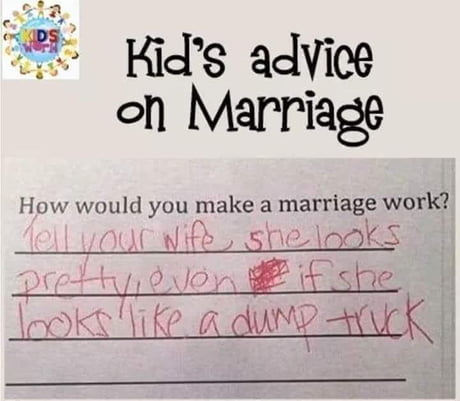 KIDS
WORK
Kid's advice
on Marriage
How would you make a marriage work?
Tell your wife she looks
pretty, even if she
looks like a dump truck